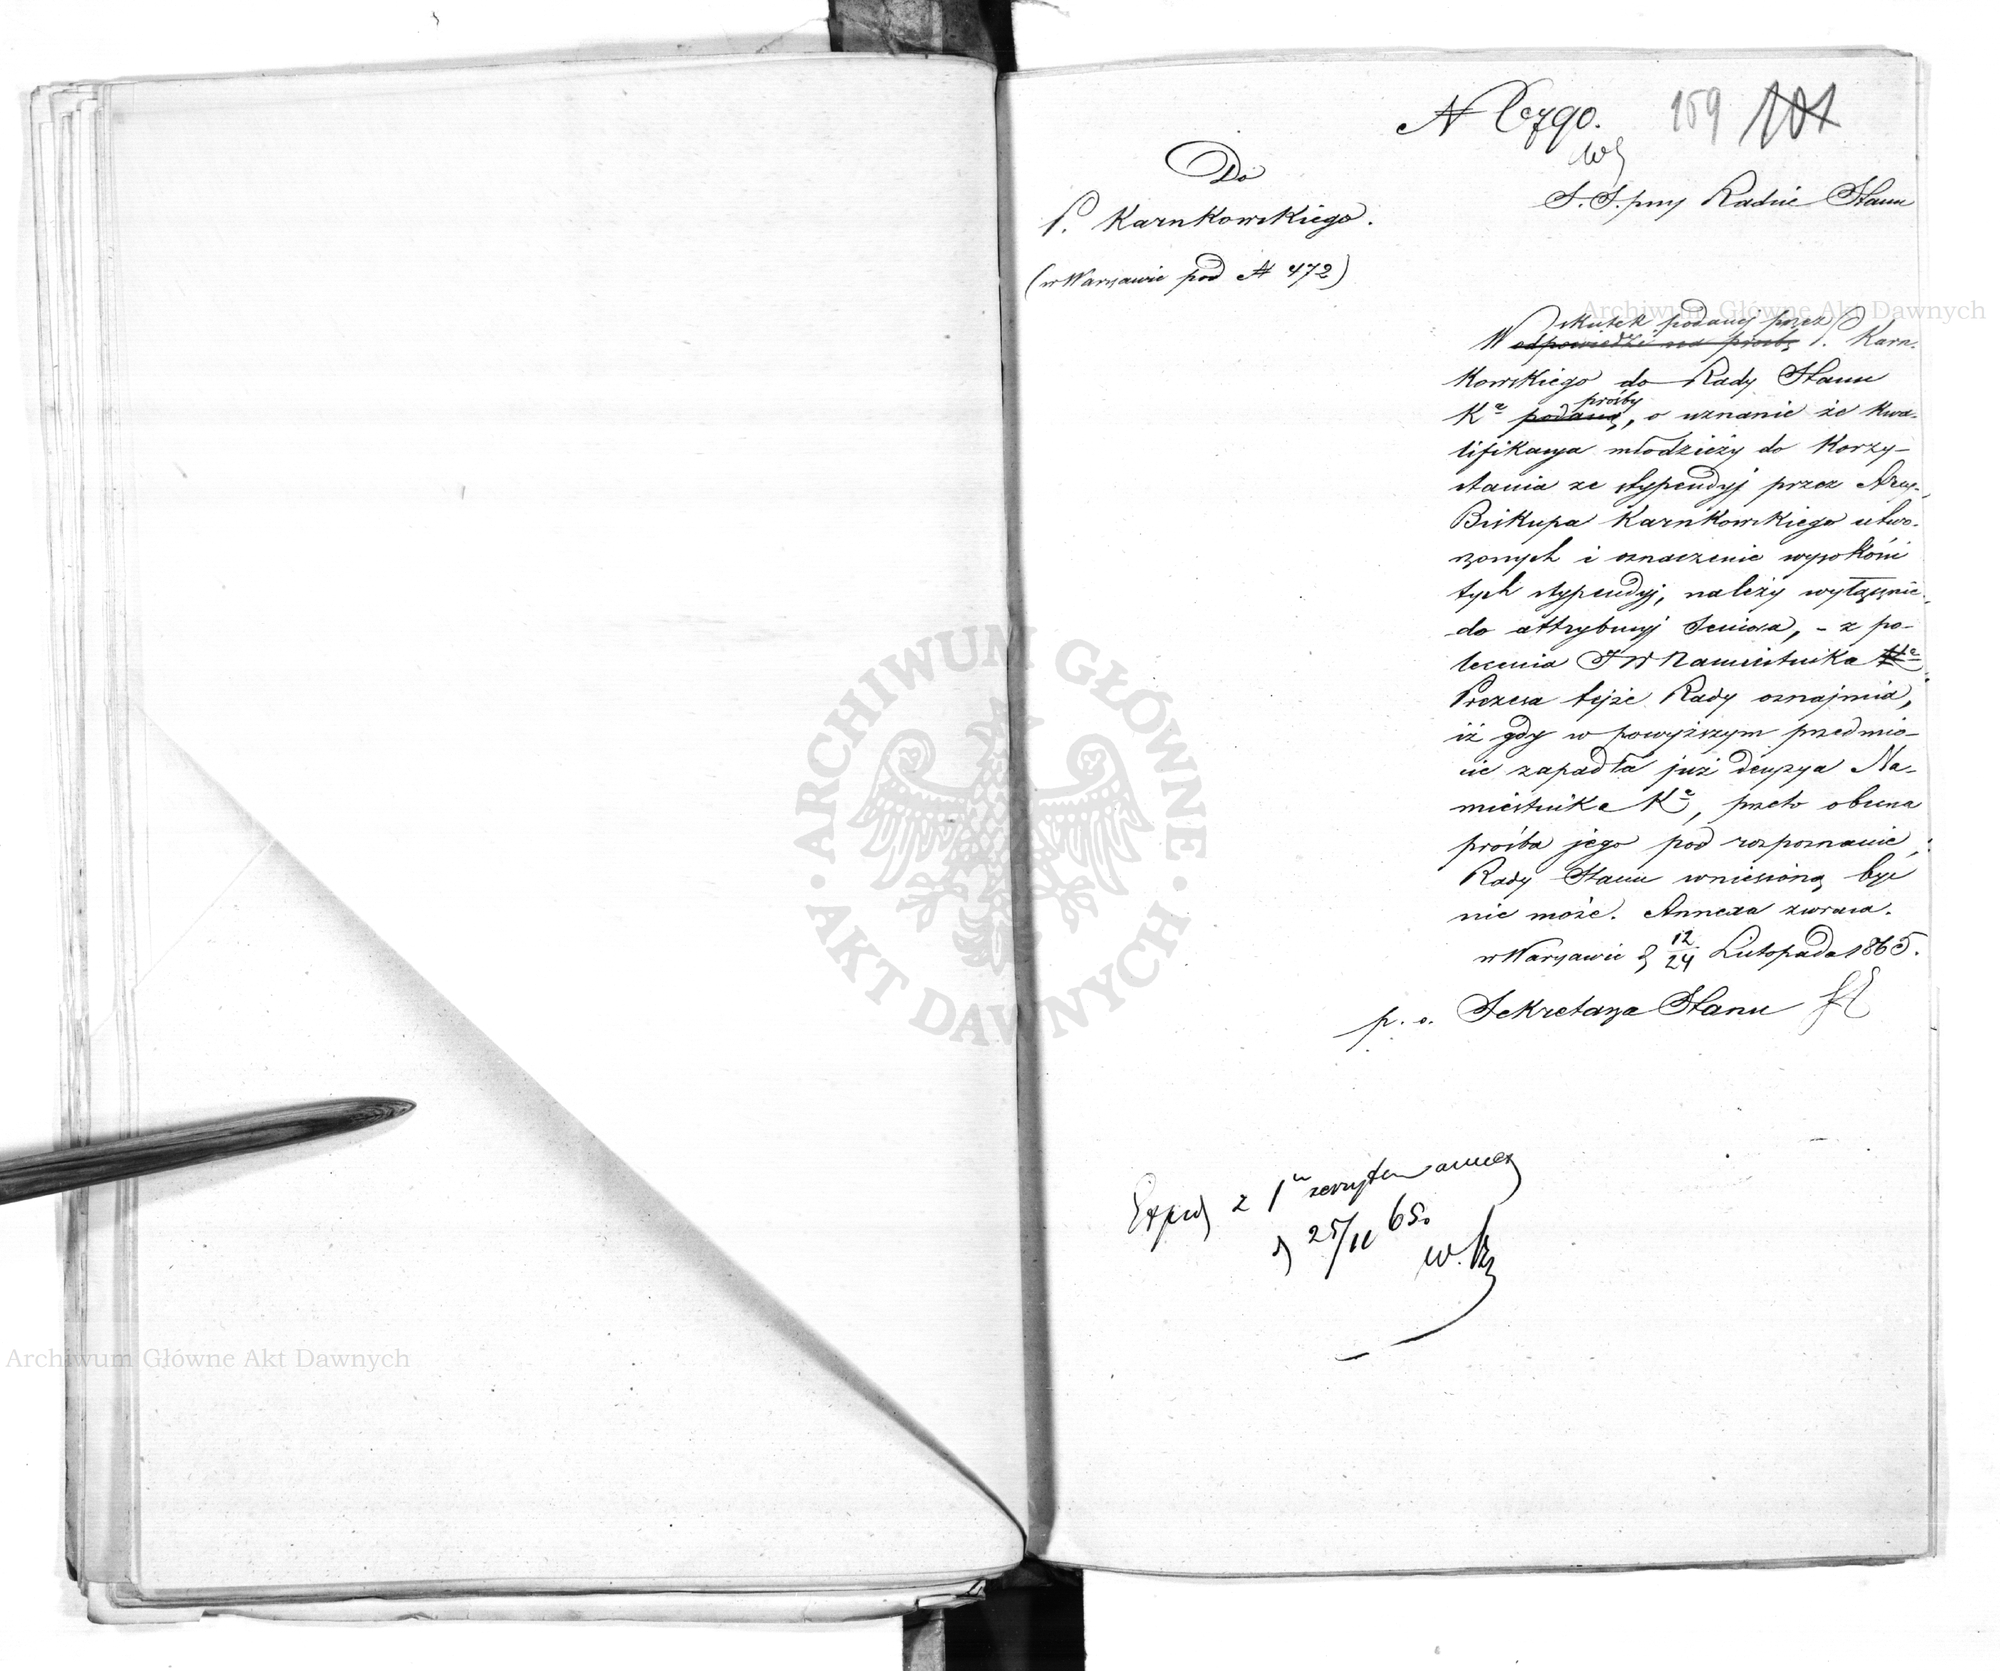 159 101
Do
P. Karnkowskiego.
(w Warszawie pod N 472)
S. S. przy Radzie Stanu
Wskutek podanej przez
W odpowiedzi na prośbę P. Karn-
kowskiego do Rady Stanu
prośby
Kᵃ podaną, o uznanie że kwa-
lifikacya młodzieży do korzy-
stania ze stypendyj przez Arcy-
Biskupa Karnkowskiego utwo-
rzonych i oznaczenie wysokości
tych stypendyj, należy wyłącznie
do attrybucyj Seniora, - z po-
lecenia JW Namiestnika
Prezesa tejże Rady oznajmia,
iż gdy w powyższym przedmio-
cie zapadła już decyzya Na-
miestnika Kᵃ, przeto obecna
prośba jego pod rozpoznanie
Rady Stanu wniesioną być
nie może. Annexa zwraca.
w Warszawie d 12/24 Listopada 1865.
p. o. Sekretarza Stanu
z 1
d 25/11 65.
Archiwum Główne Akt Dawnych
Archiwum Główne Akt Dawnych
ARCHIWUM GŁÓWNE
AKT DAWNYCH